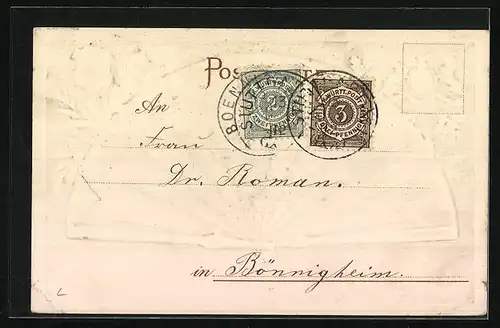 Pos
BOEN
STUT
2
WÜRTTPOST
3
PFENNIG
An
Frau
Dr. Roman.
in Bönnigheim.